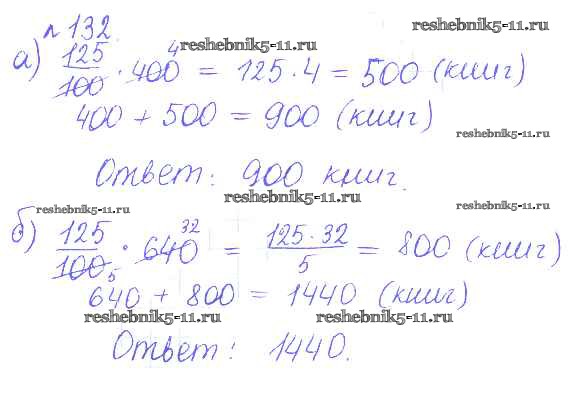 №132.
reshebnik5-11.ru
а) 125/100 · 400 4 = 125 · 4 = 500 (книг)
reshebnik5-11.ru
400 + 500 = 900 (книг)
reshebnik5-11.ru
Ответ: 900 книг.
reshebnik5-11.ru
reshebnik5-11.ru
reshebnik5-11.ru
б) 125/100 5 · 640 32 = 125 · 32/5 = 800 (книг)
640 + 800 = 1440 (книг)
reshebnik5-11.ru
reshebnik5-11.ru
Ответ: 1440.